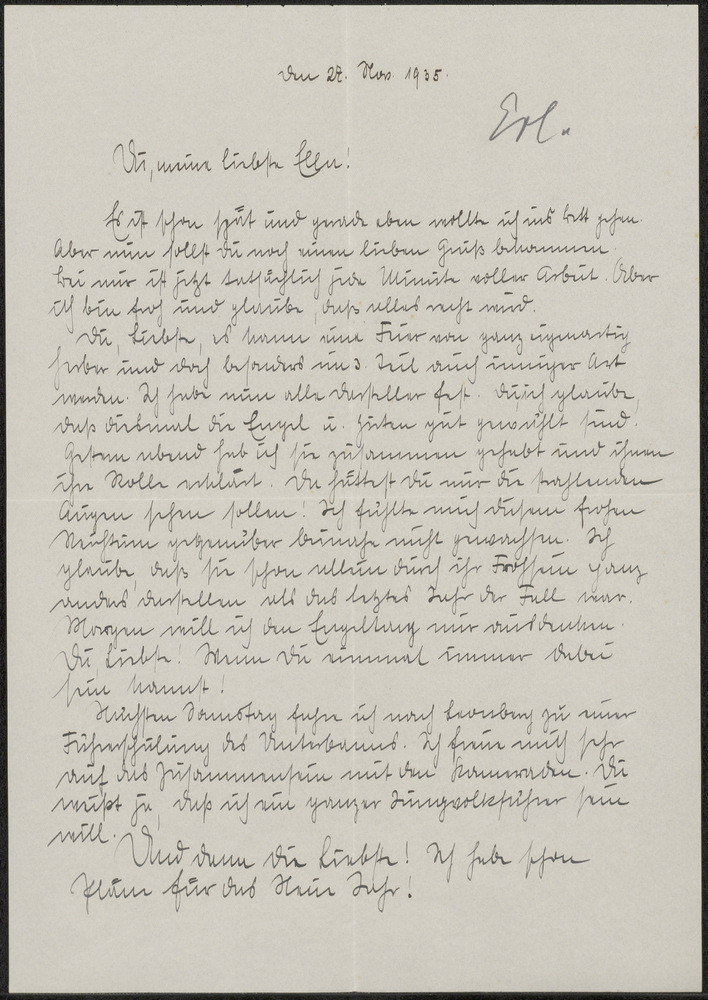 den 27. Nov. 1935.
Erl.
Du, meine liebste Ellen!
Es ist schon spät und gerade eben wollte ich ins Bett gehen.
Aber nun sollst Du noch einen lieben Gruß bekommen.
Bei mir ist jetzt tatsächlich jede Minute voller Arbeit. Aber
ich bin froh und glaube, daß alles recht wird.
Du, Liebste, es kann eine Feier von ganz eigenartig
herber und doch besonders im 3. Teil auch inniger Art
werden. Ich habe nun alle Darsteller fest. Du, ich glaube,
daß diesmal die Engel u. Hirten gut gewählt sind.
Gestern abend hab ich sie zusammen gehabt und ihnen
ihre Rolle erklärt. Da hättest Du nur die strahlenden
Augen sehen sollen! Ich fühlte mich diesem frohen
Reichtum gegenüber beinahe nicht gewachsen. Ich
glaube, daß sie schon allein durch ihr Frohsein ganz
anders darstellen als das letztes Jahr der Fall war.
Morgen will ich den Engeltanz mir ausdenken.
Du Liebste! Wenn Du einmal immer dabei
sein kannst!
Nächsten Samstag fahre ich nach Leonberg zu einer
Führerschulung des Unterbanns. Ich freue mich sehr
auf das Zusammensein mit den Kameraden. Du
weißt ja, daß ich ein ganzer Jungvolkführer sein
will.
Und dann die Liebste! Ich habe schon
Pläne für das Neue Jahr!